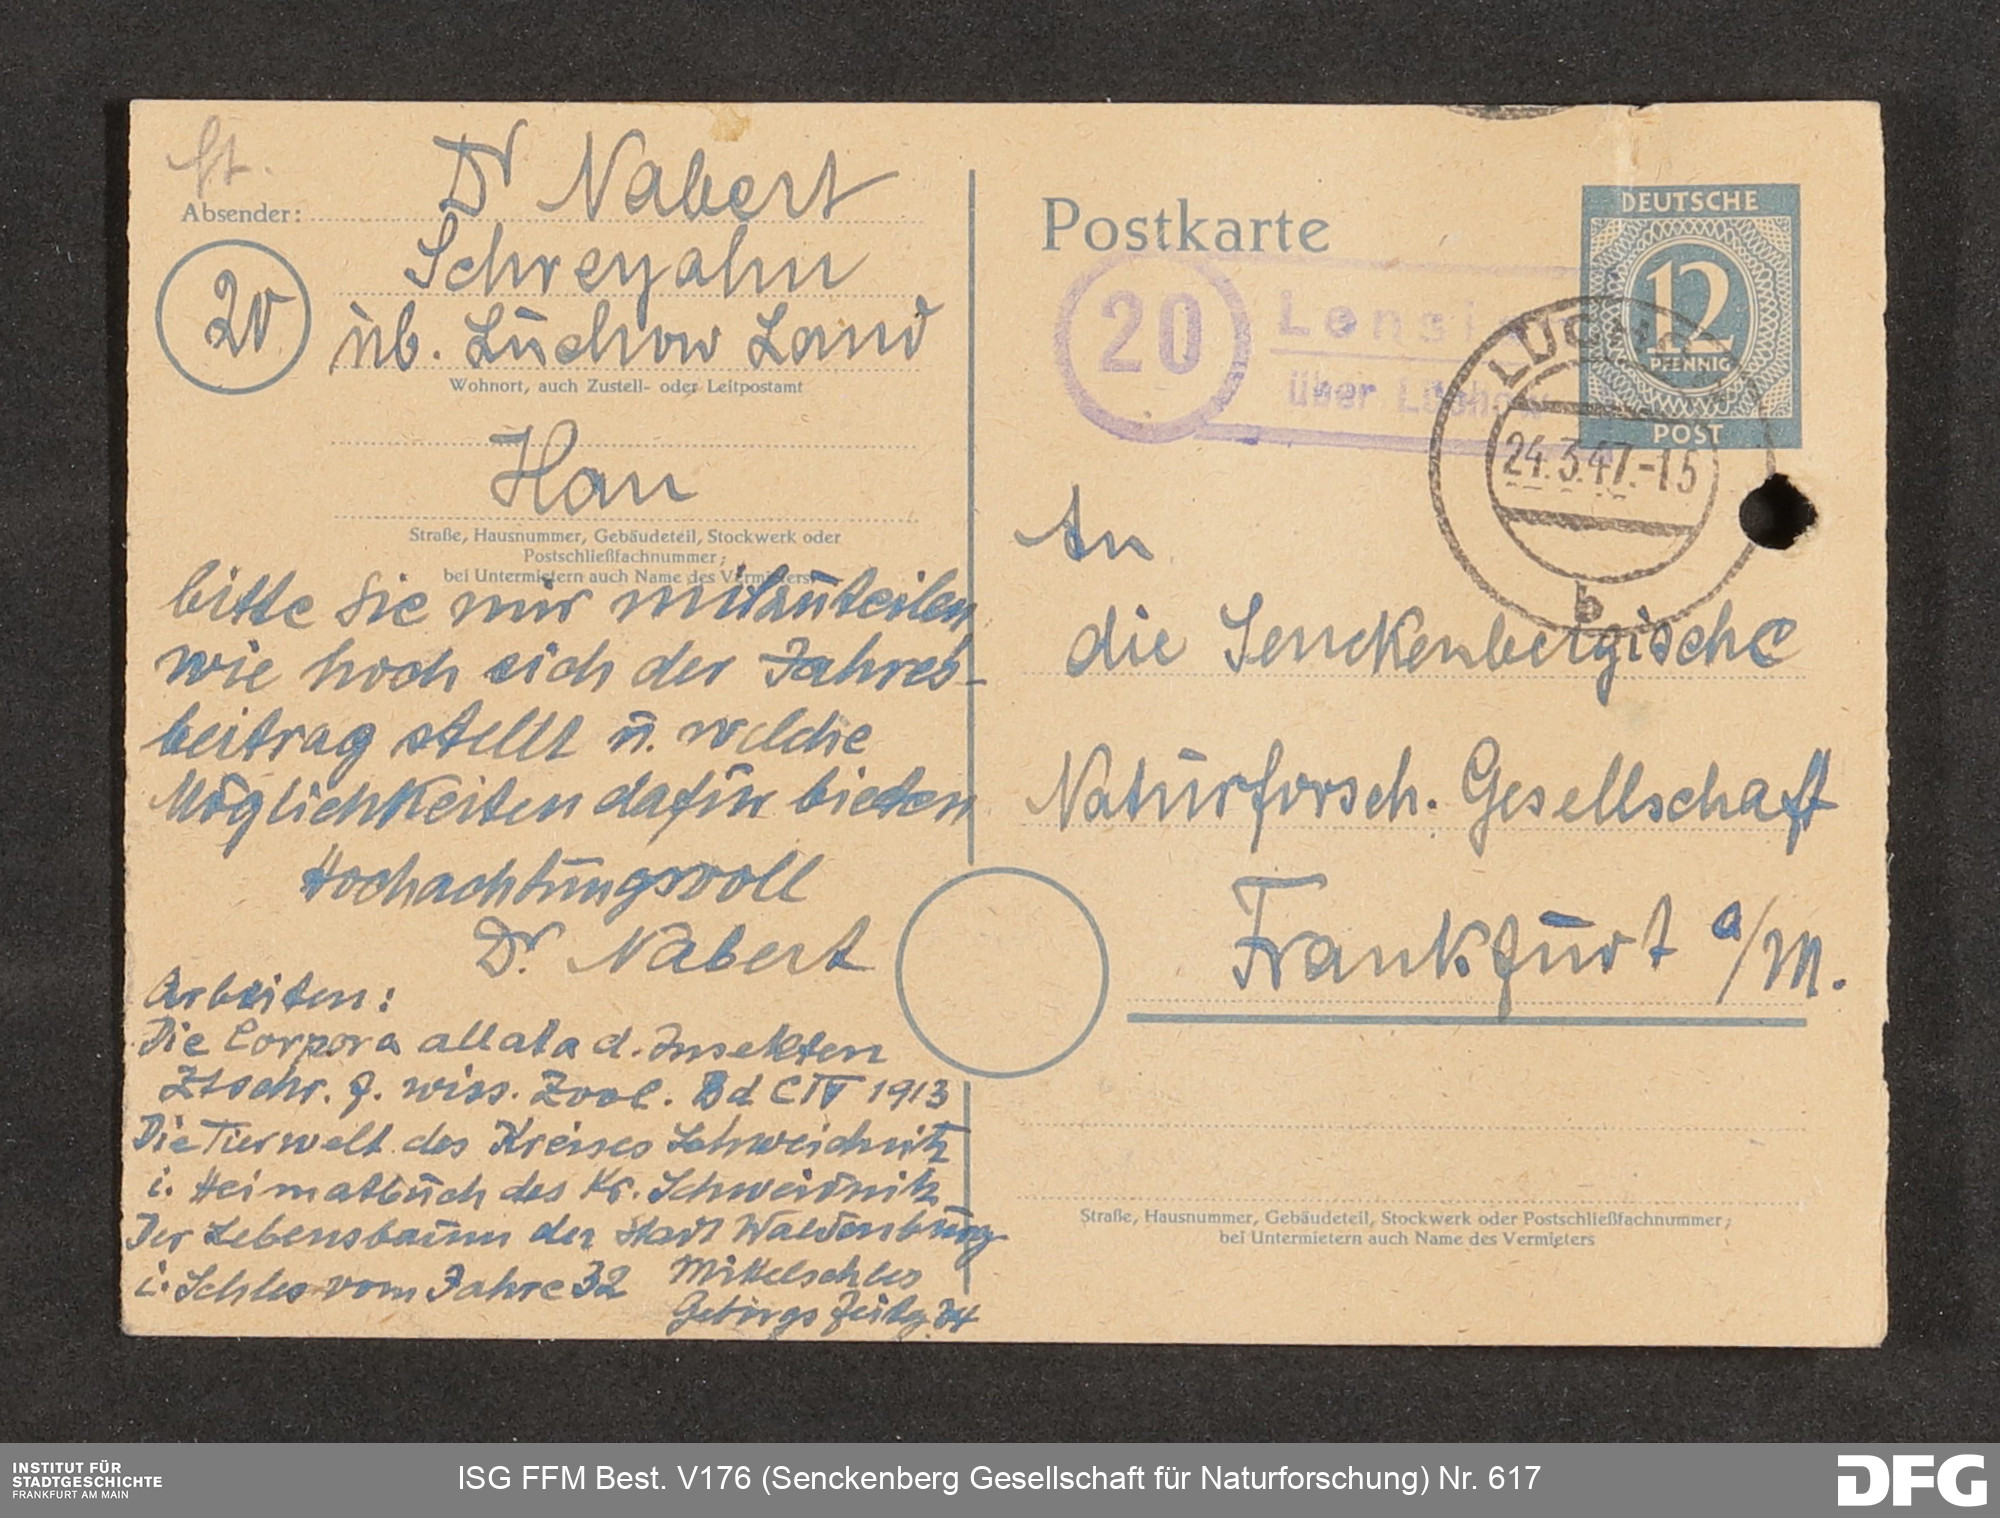 ft.
Absender: Dr Nabert
20
Schreyahn
üb. Lüchow Land
Wohnort, auch Zustell- oder Leitpostamt
Han
Straße, Hausnummer, Gebäudeteil, Stockwerk oder
Postschließfachnummer;
bei Untermietern auch Name des Vermieters
bitte Sie mir mitzuteilen
wie hoch sich der Jahres-
beitrag stellt u. welche
Möglichkeiten dafür bieten
Hochachtungsvoll
Dr. Nabert
Arbeiten:
Die Corpora allata d. Insekten
Ztschr. f. wiss. Zool. Bd CIV 1913
Die Tierwelt des Kreises Schweidnitz
i. Heimatbuch des Kr. Schweidnitz
Der Lebensbaum der Stadt Waldenburg
i. Schles vom Jahre 32 Mittelschles
Gebirgs Zeitg 34
Postkarte
DEUTSCHE
12
PFENNIG
POST
20
über Lüchow
LÜCHOW
24.3.47.-15
b
An
die Senckenbergische
Naturforsch. Gesellschaft
Frankfurt a/M.
Straße, Hausnummer, Gebäudeteil, Stockwerk oder Postschließfachnummer;
bei Untermietern auch Name des Vermieters
INSTITUT FÜR
STADTGESCHICHTE
FRANKFURT AM MAIN
ISG FFM Best. V176 (Senckenberg Gesellschaft für Naturforschung) Nr. 617
DFG